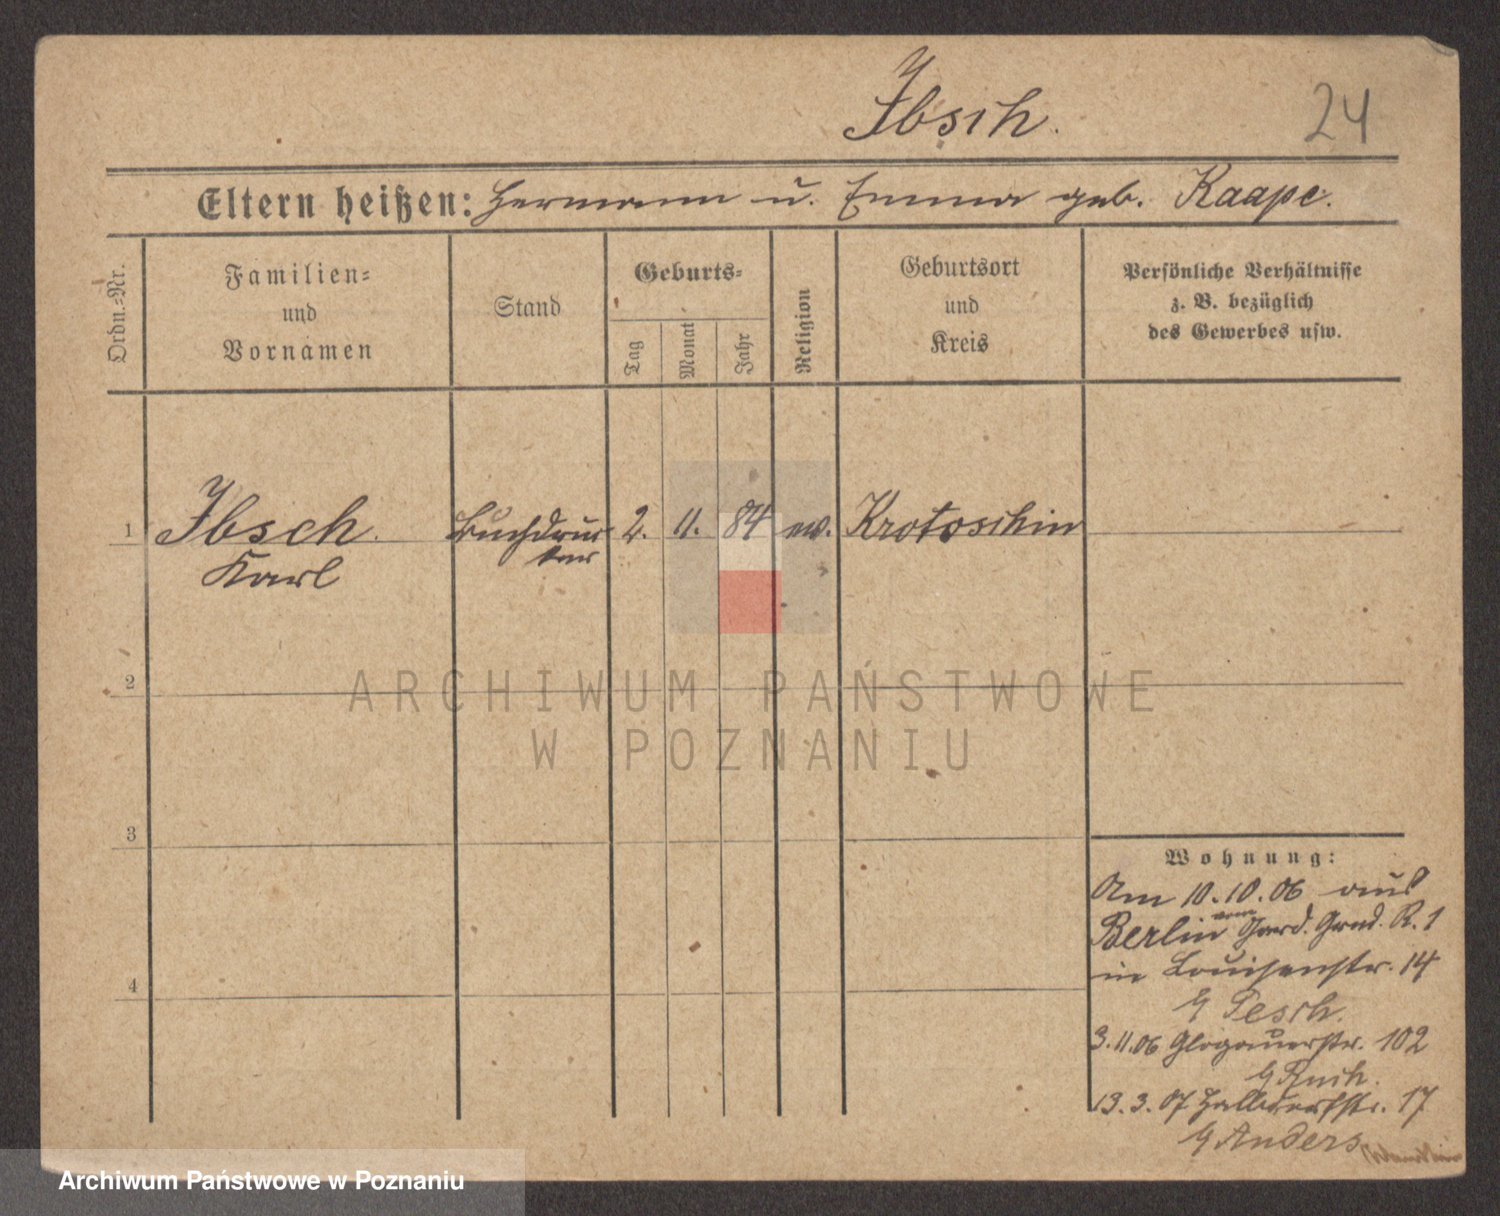 Ibsch.
24
Eltern heißen: Hermann u. Emma geb. Kaape.
Ordn.-Nr.
Familien-
und
Vornamen
Stand
Geburts-
Tag
Monat
Jahr
Religion
Geburtsort
und
Kreis
Persönliche Verhältnisse
z. B. bezüglich
des Gewerbes usw.
1 Ibsch. Buchdruc 2. 11. 84 ev. Krotoschin
Karl ker
2
ARCHIWUM PAŃSTWOWE
W POZNANIU
3
Wohnung:
Am 10.10.06 aus
Berlin vom Gard. Grnd. R. 1
4
in Louisenstr. 14
Pesch.
3.11.06 Glogauerstr. 102
13.3.07 Halbdorfstr. 17
Anders
Archiwum Państwowe w Poznaniu